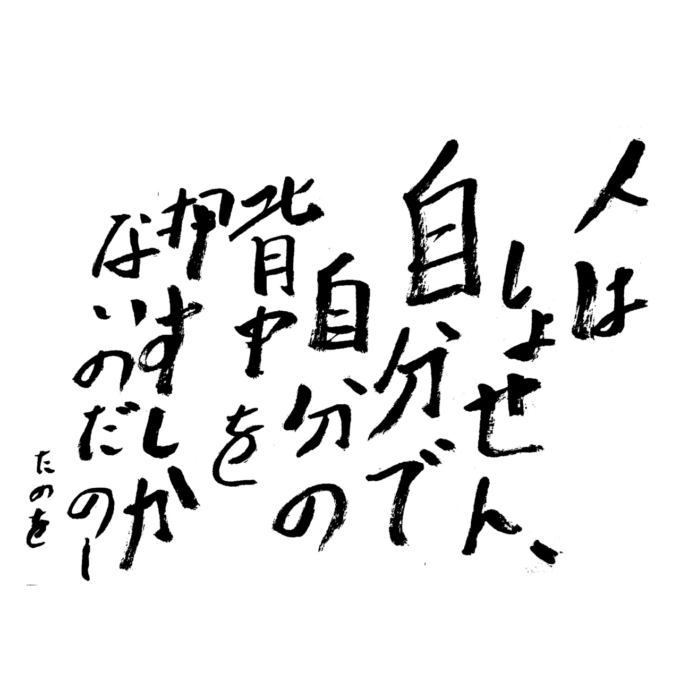 人は
しょせん、
自分で
自分の
背中を
押すしか
ないのだのー
たのを